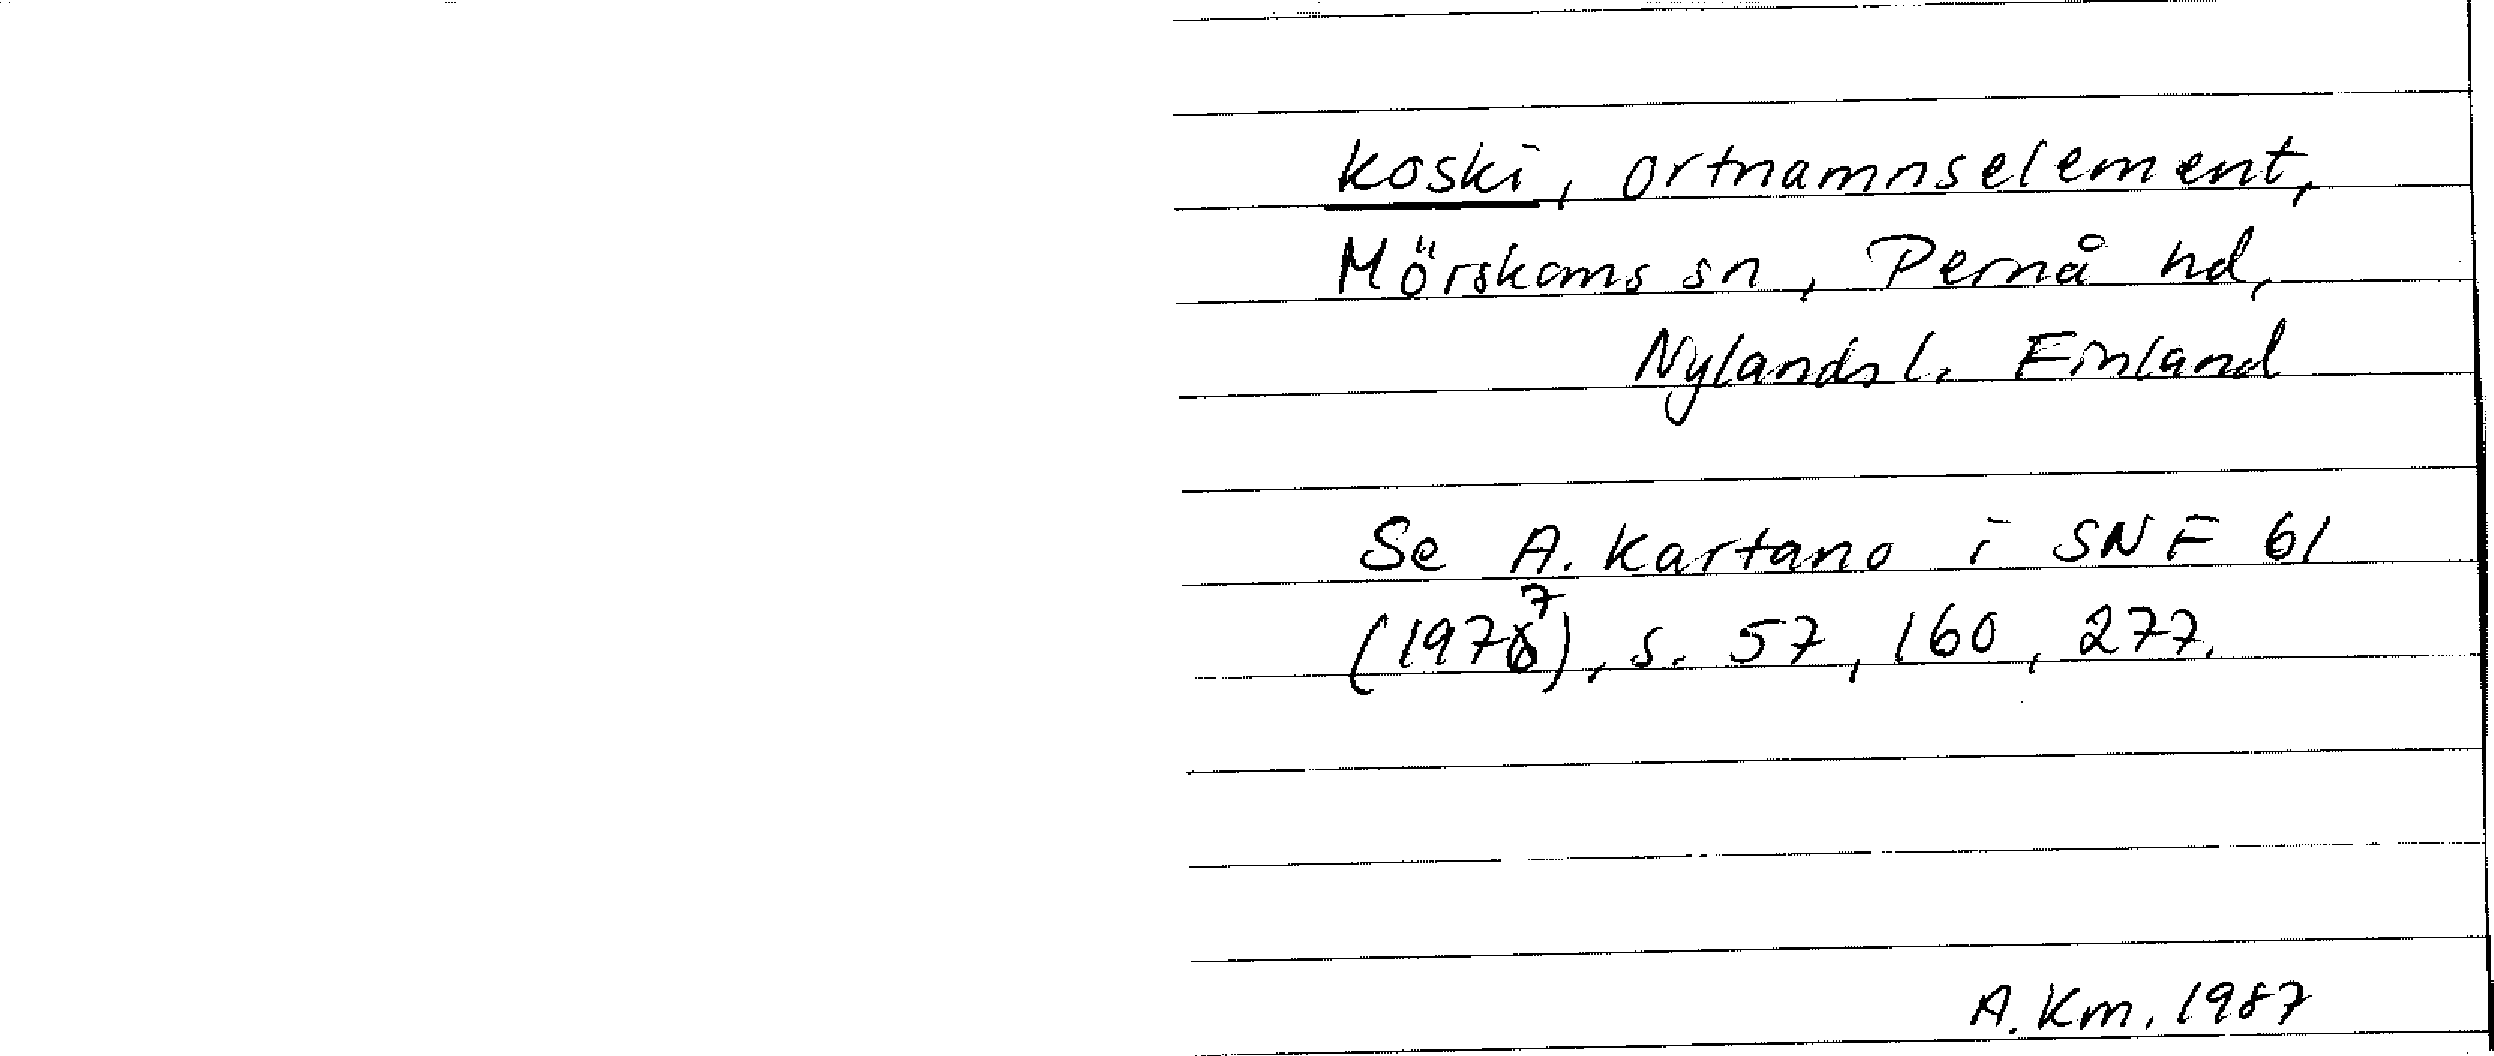 koski, ortnamnselement,
Mörskoms sn, Pernå hd,
Nylands l. Finland
Se A. Kartano i SNF 61
(1977), s. 57, 160, 277.
A. Km. 1987